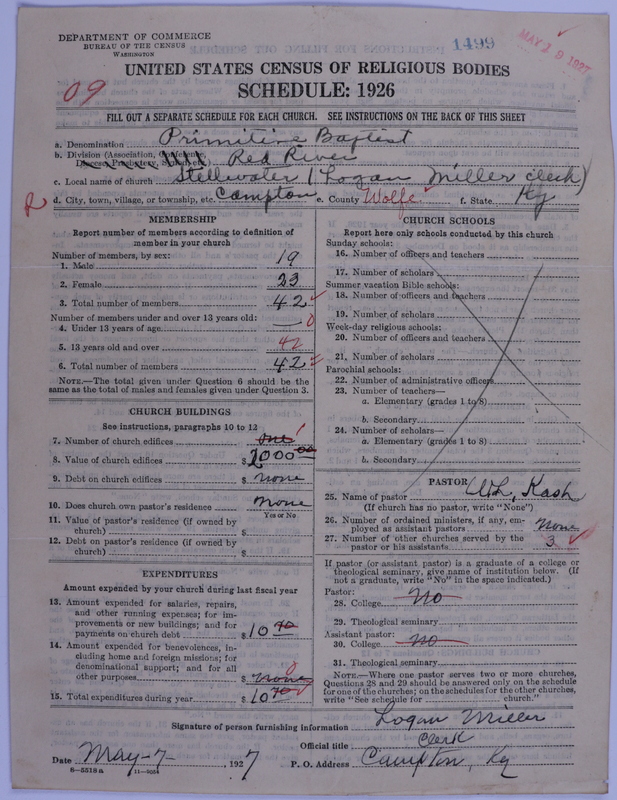 DEPARTMENT OF COMMERCE
BUREAU OF THE CENSUS
WASHINGTON
1499
MAY 1927
UNITED STATES CENSUS OF RELIGIOUS BODIES
09
SCHEDULE: 1926
FILL OUT A SEPARATE SCHEDULE FOR EACH CHURCH. SEE INSTRUCTIONS ON THE BACK OF THIS SHEET
a. Denomination Primitive Baptist
b. Division (Association, Conference,
Diocese, Presbytery, Synod, etc.) Red River
c. Local name of church Stellwater (Logan Miller clerk)
d. City, town, village, or township, etc. Campton e. County Wolfe f. State Ky
MEMBERSHIP
Report number of members according to definition of
member in your church
Number of members, by sex:
1. Male 19
2. Female 23
3. Total number of members 42
Number of members under and over 13 years old:
4. Under 13 years of age — 0
5. 13 years old and over 42
6. Total number of members 42
NOTE.—The total given under Question 6 should be the
same as the total of males and females given under Question 3.
CHURCH BUILDINGS
See instructions, paragraphs 10 to 12
7. Number of church edifices one 1
8. Value of church edifices $ 2000 00
9. Debt on church edifices $ none
10. Does church own pastor's residence none
Yes or No
11. Value of pastor's residence (if owned by
church) $
12. Debt on pastor's residence (if owned by
church) $
EXPENDITURES
Amount expended by your church during last fiscal year
13. Amount expended for salaries, repairs,
and other running expenses; for im-
provements or new buildings; and for
payments on church debt $ 10
14. Amount expended for benevolences, in-
cluding home and foreign missions; for
denominational support; and for all
other purposes $ none 0
15. Total expenditures during year $ 10
CHURCH SCHOOLS
Report here only schools conducted by this church
Sunday schools:
16. Number of officers and teachers
17. Number of scholars
Summer vacation Bible schools:
18. Number of officers and teachers
19. Number of scholars
Week-day religious schools:
20. Number of officers and teachers
21. Number of scholars
Parochial schools:
22. Number of administrative officers
23. Number of teachers—
a. Elementary (grades 1 to 8)
b. Secondary
24. Number of scholars—
a. Elementary (grades 1 to 8)
b. Secondary
PASTOR
25. Name of pastor Kash
(If church has no pastor, write "None")
26. Number of ordained ministers, if any, em-
ployed as assistant pastors None
27. Number of other churches served by the
pastor or his assistants 3
If pastor (or assistant pastor) is a graduate of a college or
theological seminary, give name of institution below. (If
not a graduate, write "No" in the space indicated.)
Pastor:
28. College No
29. Theological seminary
Assistant pastor:
30. College No
31. Theological seminary
NOTE.—Where one pastor serves two or more churches,
Questions 28 and 29 should be answered only on the schedule
for one of the churches; on the schedules for the other churches,
write "See schedule for church."
Signature of person furnishing information Logan Miller
Official title Clerk
Date May-7-, 1927 P. O. Address Campton, Ky
8-5518a